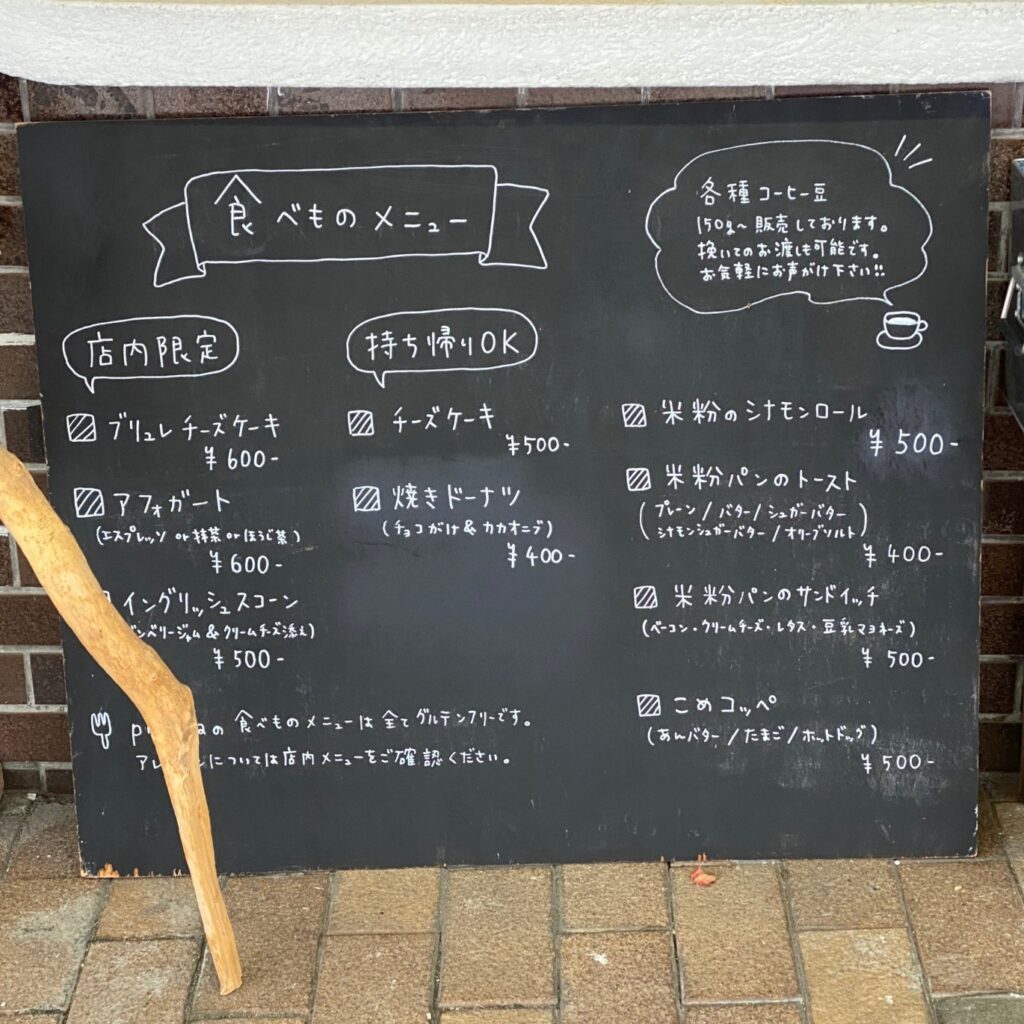 食べもの メニュー
各種 コーヒー豆
150g〜 販売しております。
挽いてのお渡しも可能です。
お気軽にお声がけ下さい!!
店内限定
ブリュレチーズケーキ
¥600-
アフォガート
(エスプレッソ or 抹茶 or ほうじ茶)
¥600-
イングリッシュスコーン
ンベリージャム & クリームチーズ添え)
¥500-
持ち帰りOK
チーズケーキ
¥500-
焼きドーナツ
(チョコがけ & カカオニブ)
¥400-
米粉のシナモンロール
¥500-
米粉パンのトースト
(プレーン / バター / シュガーバター
シナモンシュガーバター / オリーブソルト)
¥400-
米粉パンのサンドイッチ
(ベーコン・クリームチーズ・レタス・豆乳マヨネーズ)
¥500-
こめコッペ
(あんバター / たまご / ホットドッグ)
¥500-
の 食べものメニューは全てグルテンフリーです。
については店内メニューをご確認ください。